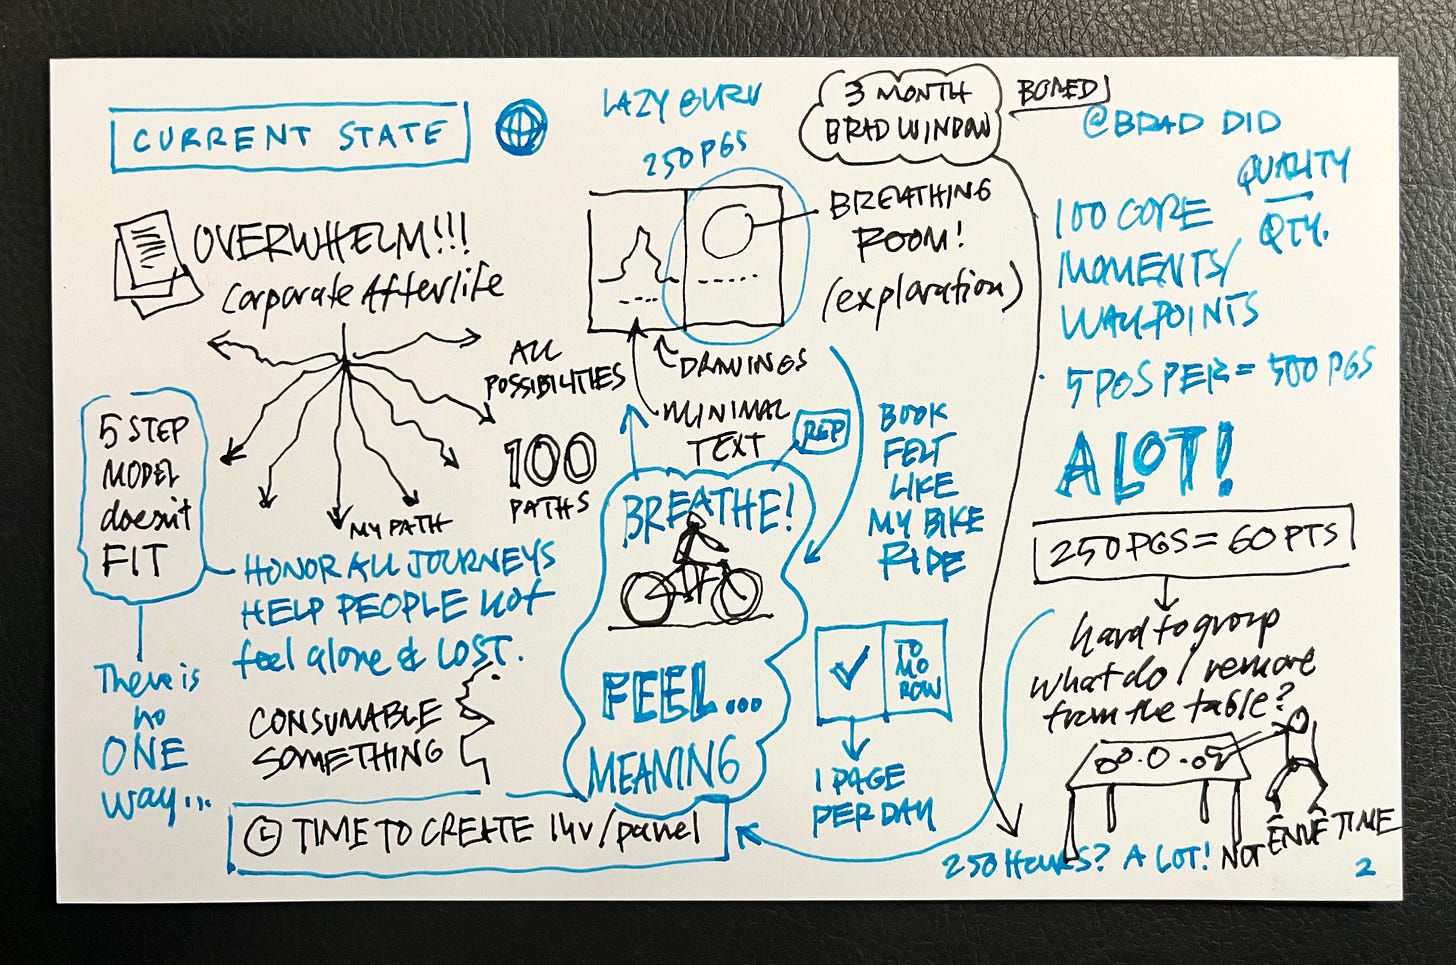 CURRENT STATE
OVERWHELM!!!
Corporate Afterlife
ALL
POSSIBILITIES
100
PATHS
MY PATH
5 STEP
MODEL
doesn't
FIT
There is
no
ONE
way...
HONOR ALL JOURNEYS
HELP PEOPLE not
feel alone & LOST.
CONSUMABLE
SOMETHING
TIME TO CREATE 1hr/panel
LAZY GURU
250 PGS
BREATHING
ROOM!
(exploration)
DRAWINGS
MINIMAL
TEXT
REP
BREATHE!
FEEL...
MEANING
BOOK
FELT
LIKE
MY BIKE
RIDE
TO
MO
ROW
1 PAGE
PER DAY
3 MONTH
BRAD WINDOW
BORED
@BRAD DID
QUALITY
QTY.
100 CORE
MOMENTS/
WAYPOINTS
5 PGS PER = 500 PGS
A LOT!
250 PGS = 60 PTS
hard to group
what do I remove
from the table?
250 HOURS? A LOT! NOT
TIME
2